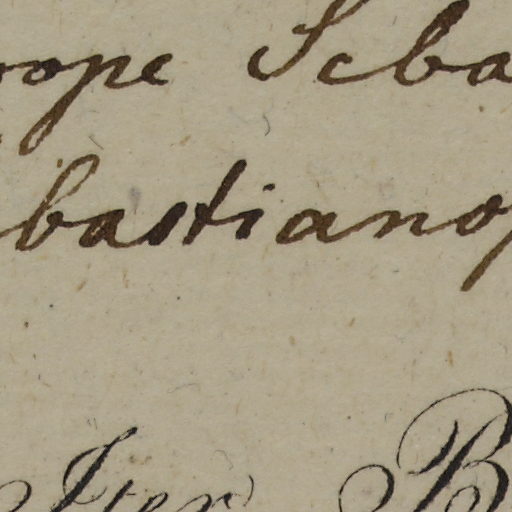 rope Seba
bastianop
Iter B